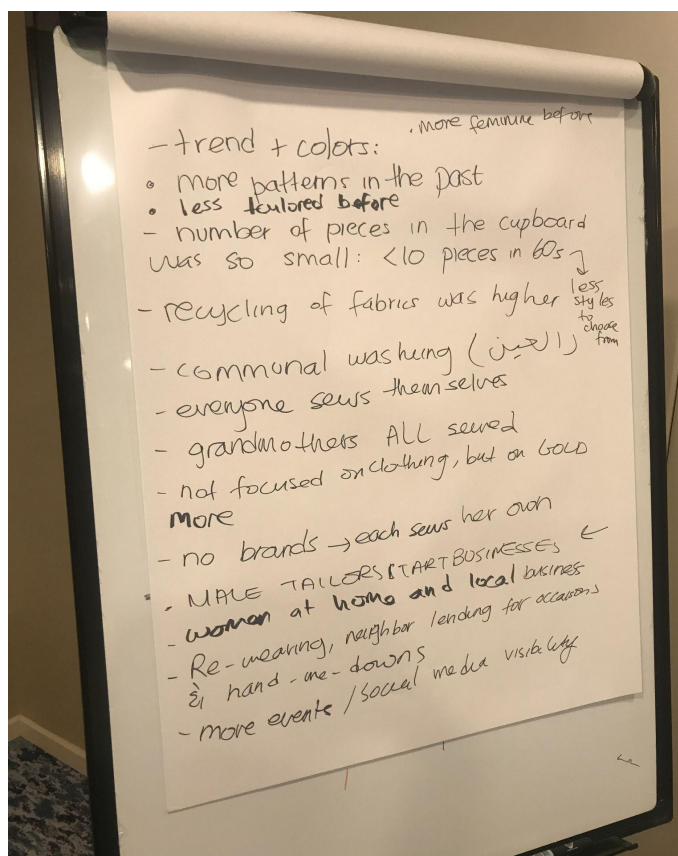 . more feminine before
- trend + colors:
• more patterns in the past
• less tailored before
- number of pieces in the cupboard
was so small: <10 pieces in 60s
↓
less
styles
to
choose
from
- recycling of fabrics was higher
- communal washing (العين)
- everyone sews themselves
- grandmothers ALL sewed
- not focused on clothing, but on GOLD
more
- no brands → each sews her own
. MALE TAILORS START BUSINESSES ←
- women at home and local business
- Re-wearing, neighbor lending for occasions
& hand-me-downs
- more events / social media visibility